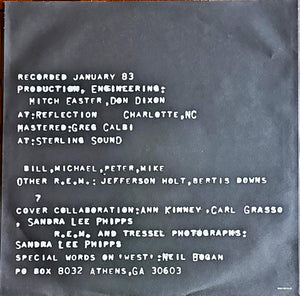 RECORDED JANUARY 83
PRODUCTION, ENGINEERING:
MITCH EASTER, DON DIXON
AT:REFLECTION CHARLOTTE,NC
MASTERED:GREG CALBI
AT:STERLING SOUND
BILL,MICHAEL,PETER,MIKE
OTHER R.E.M.: JEFFERSON HOLT,BERTIS DOWNS
7
COVER COLLABORATION:ANN KINNEY,CARL GRASSO
, SANDRA LEE PHIPPS
R.E.M. AND TRESSEL PHOTOGRAPHS:
SANDRA LEE PHIPPS
SPECIAL WORDS ON "WEST":NEIL BOGAN
PO BOX 8032 ATHENS,GA 30603